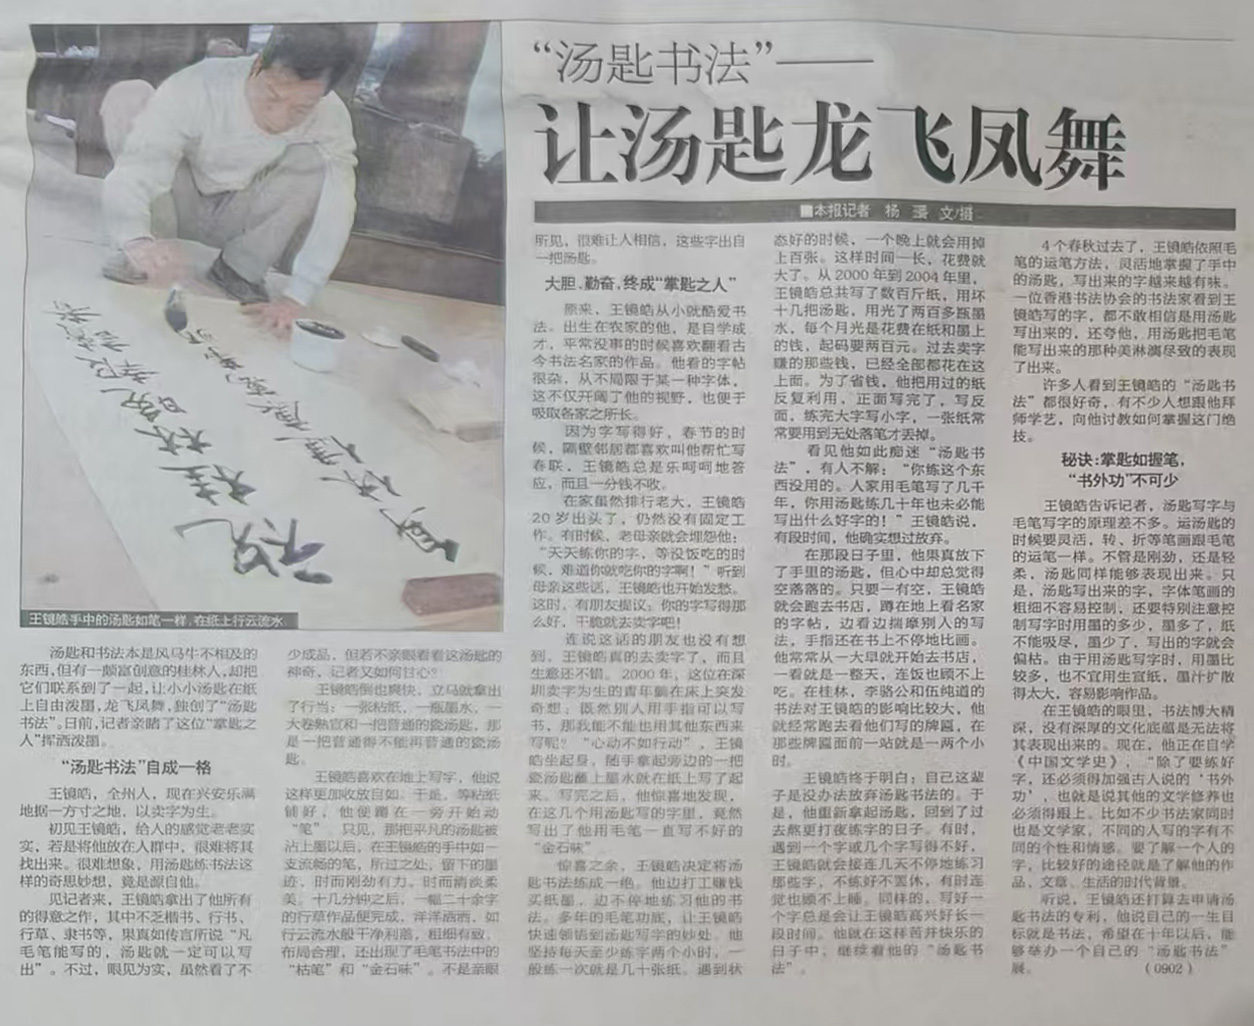 “汤匙书法”——
让汤匙龙飞凤舞
■本报记者 杨 文/摄
王镜皓手中的汤匙如笔一样，在纸上行云流水
汤匙和书法本是风马牛不相及的
东西，但有一颇富创意的桂林人，却把
它们联系到了一起，让小小汤匙在纸
上自由泼墨，龙飞凤舞，独创了“汤匙
书法”。日前，记者亲睹了这位“掌匙之
人”挥洒泼墨。
“汤匙书法”自成一格
王镜皓，全州人，现在兴安乐满
地据一方寸之地，以卖字为生。
初见王镜皓，给人的感觉老老实
实，若是将他放在人群中，很难将其
找出来。很难想象，用汤匙练书法这
样的奇思妙想，竟是源自他。
见记者来，王镜皓拿出了他所有
的得意之作，其中不乏楷书、行书、
行草、隶书等，果真如传言所说“凡
毛笔能写的，汤匙就一定可以写
出”。不过，眼见为实，虽然看了不
少成品，但若不亲眼看看这汤匙的
神奇，记者又如何甘心？
王镜皓倒也爽快，立马就拿出
了行当：一张粘纸，一瓶墨水，一
大卷熟宣和一把普通的瓷汤匙，那
是一把普通得不能再普通的瓷汤
匙。
王镜皓喜欢在地上写字，他说
这样更加收放自如。于是，等粘纸
铺好，他便蹲在一旁开始动
“笔”。只见，那把平凡的汤匙被
沾上墨以后，在王镜皓的手中如一
支流畅的笔，所过之处，留下的墨
迹，时而刚劲有力，时而清淡柔
美。十几分钟之后，一幅二十余字
的行草作品便完成，洋洋洒洒，如
行云流水般干净利落，粗细有致，
布局合理，还出现了毛笔书法中的
“枯笔”和“金石味”。不是亲眼
所见，很难让人相信，这些字出自
一把汤匙。
大胆、勤奋，终成“掌匙之人”
原来，王镜皓从小就酷爱书
法。出生在农家的他，是自学成
才，平常没事的时候喜欢翻看古
今书法名家的作品。他看的字帖
很杂，从不局限于某一种字体，
这不仅开阔了他的视野，也便于
吸取各家之所长。
因为字写得好，春节的时
候，隔壁邻居都喜欢叫他帮忙写
春联，王镜皓总是乐呵呵地答
应，而且一分钱不收。
在家虽然排行老大，王镜皓
20岁出头了，仍然没有固定工
作。有时候，老母亲就会埋怨他：
“天天练你的字，等没饭吃的时
候，难道你就吃你的字啊！”听到
母亲这些话，王镜皓也开始发愁。
这时，有朋友提议：你的字写得那
么好，干脆就去卖字吧！
连说这话的朋友也没有想
到，王镜皓真的去卖字了，而且
生意还不错。2000年，这位在深
圳卖字为生的青年躺在床上突发
奇想：既然别人用手指可以写
书，那我能不能也用其他东西来
写呢？“心动不如行动”，王镜
皓坐起身，随手拿起旁边的一把
瓷汤匙蘸上墨水就在纸上写了起
来。写完之后，他惊喜地发现，
在这几个用汤匙写的字里，竟然
写出了他用毛笔一直写不好的
“金石味”
惊喜之余，王镜皓决定将汤
匙书法练成一绝。他边打工赚钱
买纸墨，边不停地练习他的书
法。多年的毛笔功底，让王镜皓
快速领悟到汤匙写字的妙处。他
坚持每天至少练字两个小时，一
般练一次就是几十张纸。遇到状
态好的时候，一个晚上就会用掉
上百张。这样时间一长，花费就
大了。从2000年到2004年里，
王镜皓总共写了数百斤纸，用坏
十几把汤匙，用光了两百多瓶墨
水，每个月光是花费在纸和墨上
的钱，起码要两百元。过去卖字
赚的那些钱，已经全部都花在这
上面。为了省钱，他把用过的纸
反复利用，正面写完了，写反
面，练完大字写小字，一张纸常
常要用到无处落笔才丢掉。
看见他如此痴迷“汤匙书
法”，有人不解：“你练这个东
西没用的。人家用毛笔写了几千
年，你用汤匙练几十年也未必能
写出什么好字的！”王镜皓说，
有段时间，他确实想过放弃。
在那段日子里，他果真放下
了手里的汤匙，但心中却总觉得
空落落的。只要一有空，王镜皓
就会跑去书店，蹲在地上看名家
的字帖，边看边揣摩别人的写
法，手指还在书上不停地比画。
他常常从一大早就开始去书店，
一看就是一整天，连饭也顾不上
吃。在桂林，李骆公和伍纯道的
书法对王镜皓的影响比较大，他
就经常跑去看他们写的牌匾，在
那些牌匾面前一站就是一两个小
时。
王镜皓终于明白：自己这辈
子是没办法放弃汤匙书法的。于
是，他重新拿起汤匙，回到了过
去熬更打夜练字的日子。有时，
遇到一个字或几个字写得不好，
王镜皓就会接连几天不停地练习
那些字，不练好不罢休，有时连
觉也顾不上睡。同样的，写好一
个字总是会让王镜皓高兴好长一
段时间。他就在这样苦并快乐的
日子中，继续着他的“汤匙书
法”。
4个春秋过去了，王镜皓依照毛
笔的运笔方法，灵活地掌握了手中
的汤匙，写出来的字越来越有味。
一位香港书法协会的书法家看到王
镜皓写的字，都不敢相信是用汤匙
写出来的，还夸他，用汤匙把毛笔
能写出来的那种美淋漓尽致的表现
了出来。
许多人看到王镜皓的“汤匙书
法”都很好奇，有不少人想跟他拜
师学艺，向他讨教如何掌握这门绝
技。
秘诀：掌匙如握笔，
“书外功”不可少
王镜皓告诉记者，汤匙写字与
毛笔写字的原理差不多。运汤匙的
时候要灵活，转、折等笔画跟毛笔
的运笔一样。不管是刚劲，还是轻
柔，汤匙同样能够表现出来。只
是，汤匙写出来的字，字体笔画的
粗细不容易控制，还要特别注意控
制写字时用墨的多少，墨多了，纸
不能吸尽，墨少了，写出的字就会
偏枯。由于用汤匙写字时，用墨比
较多，也不宜用生宣纸，墨汁扩散
得太大，容易影响作品。
在王镜皓的眼里，书法博大精
深，没有深厚的文化底蕴是无法将
其表现出来的。现在，他正在自学
《中国文学史》，“除了要练好
字，还必须得加强古人说的‘书外
功’，也就是说其他的文学修养也
必须得跟上。比如不少书法家同时
也是文学家，不同的人写的字有不
同的个性和情感。要了解一个人的
字，比较好的途径就是了解他的作
品、文章、生活的时代背景。
听说，王镜皓还打算去申请汤
匙书法的专利，他说自己的一生目
标就是书法，希望在十年以后，能
够举办一个自己的“汤匙书法”
展。 （0902）